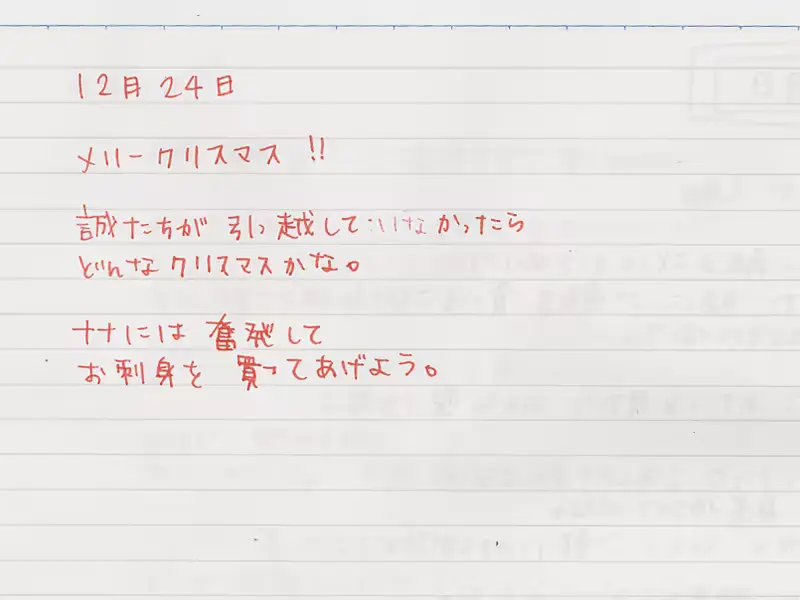 12月24日
メリークリスマス!!
誠たちが引っ越していなかったら
どんなクリスマスかな。
ナナには奮発して
お刺身を買ってあげよう。